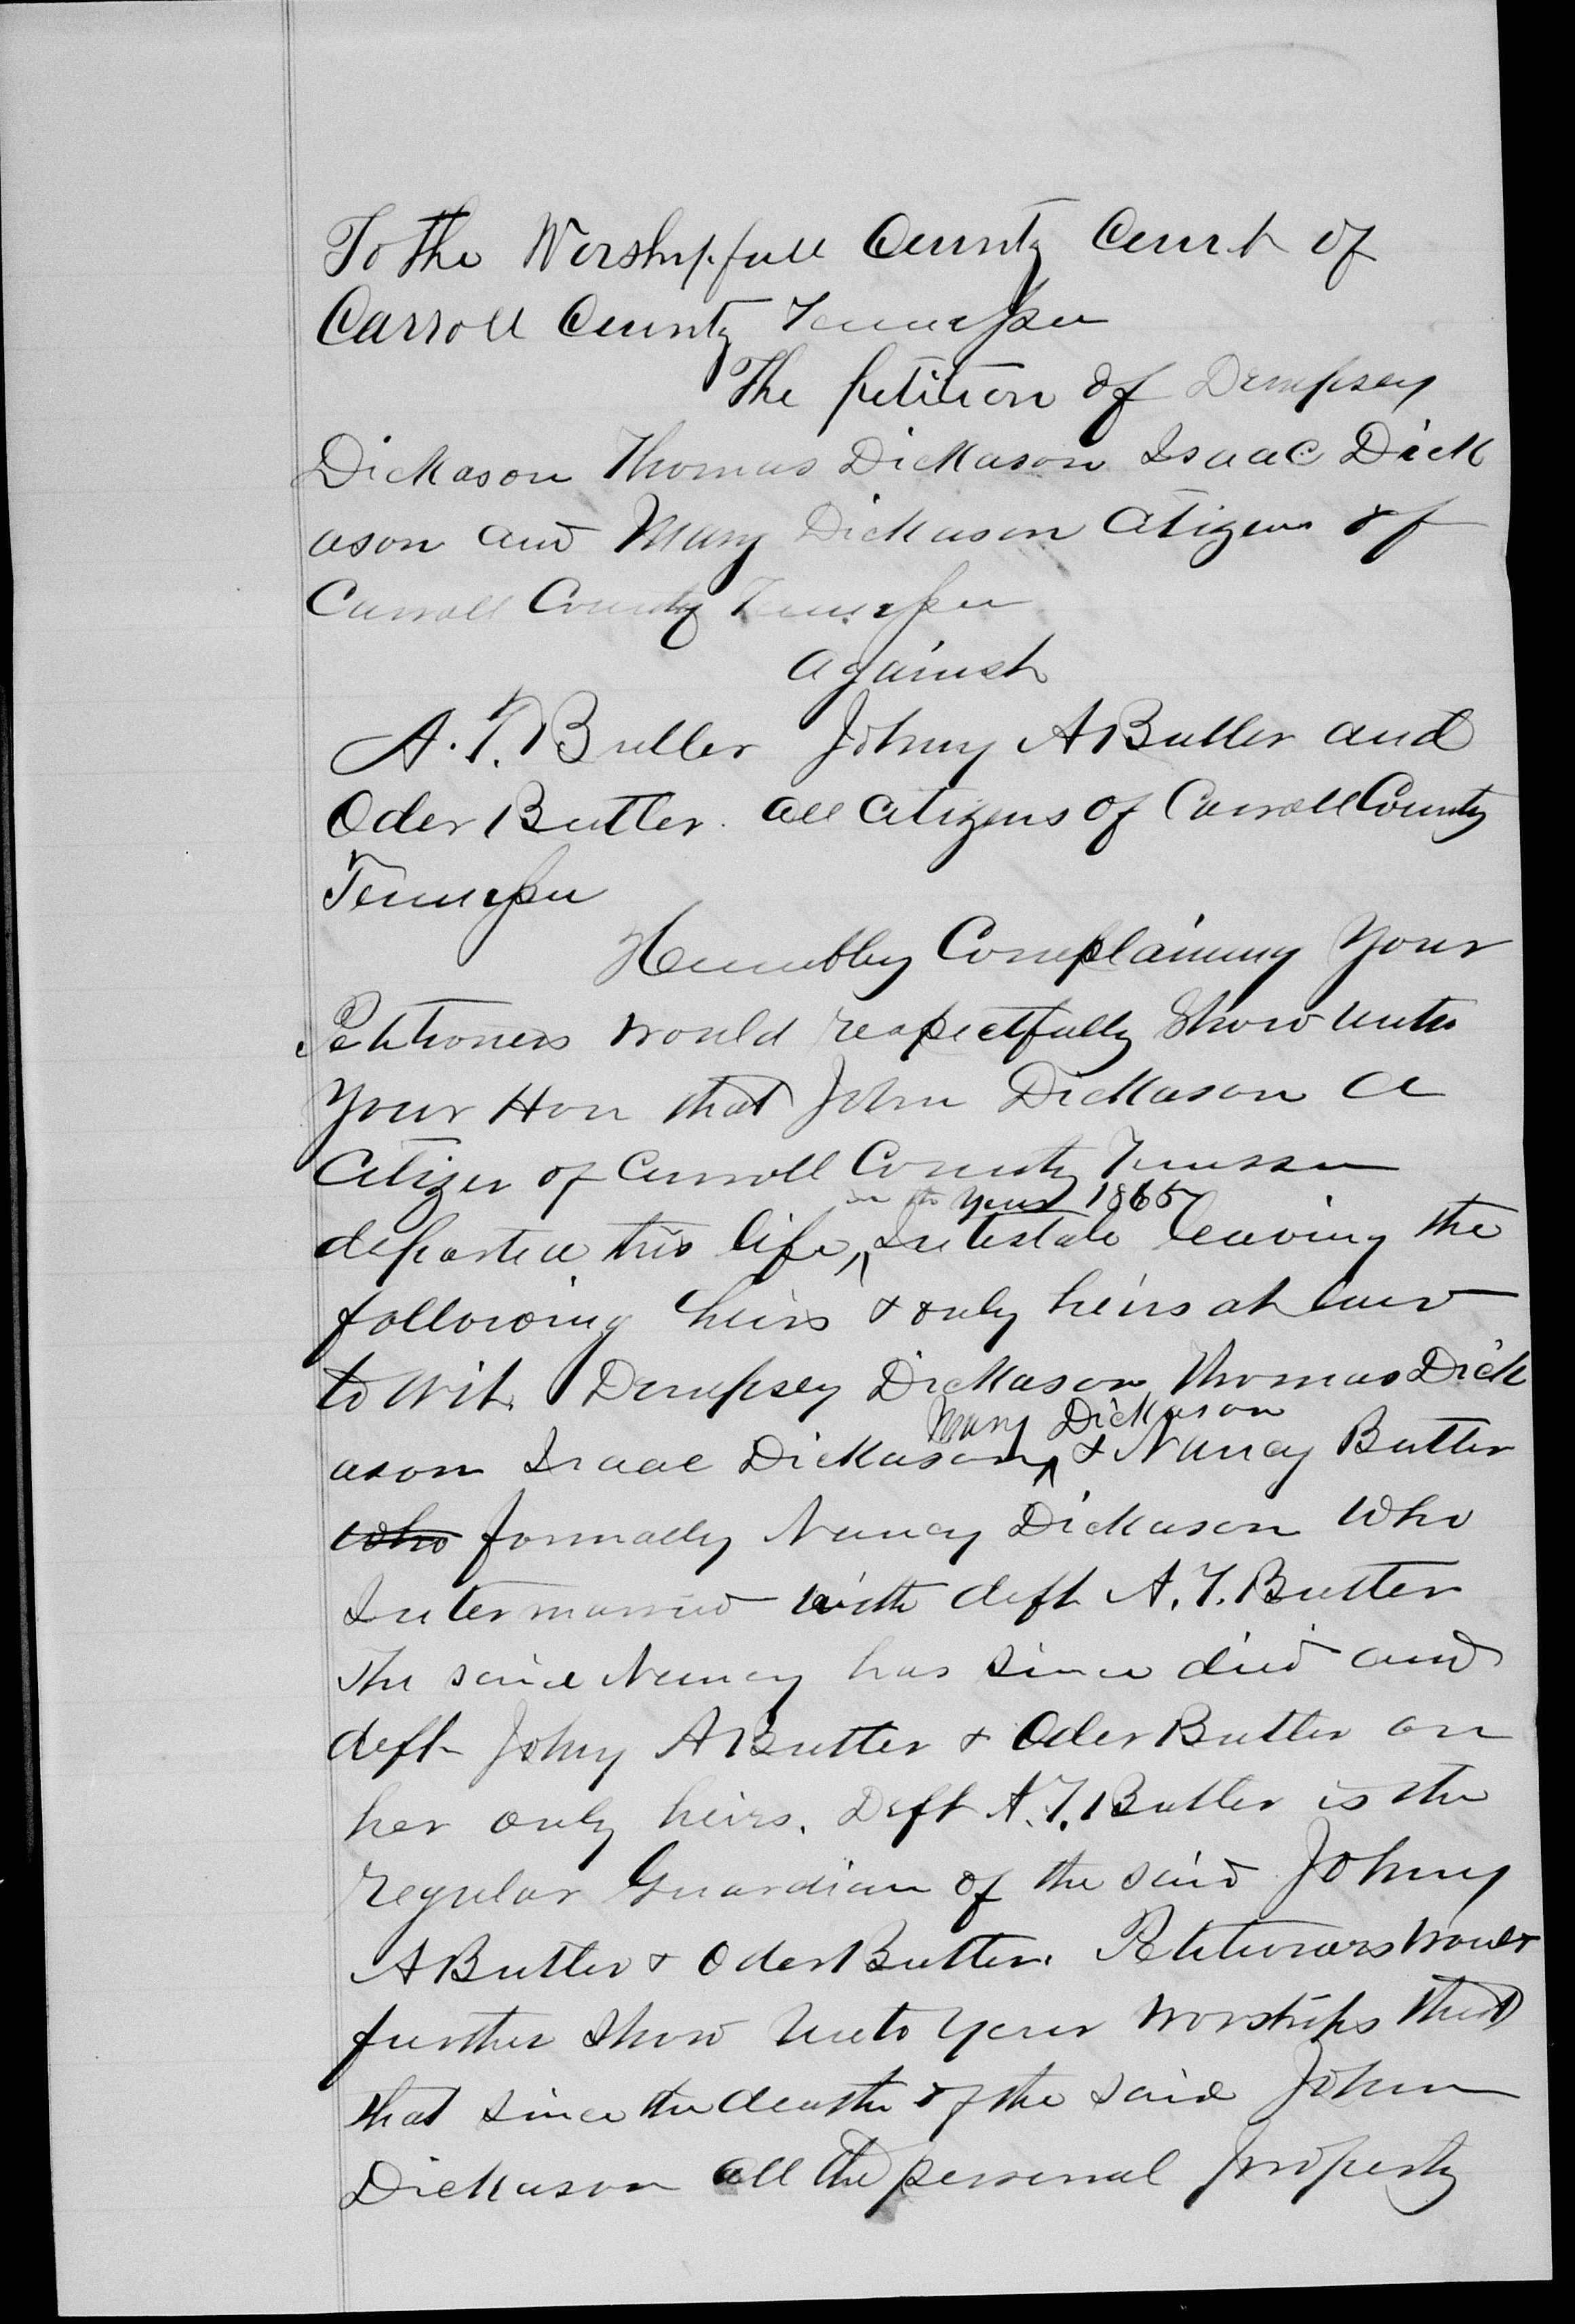 To the Worshipfull County Court of
Carroll County Tennessee
The petition of Dempsey
Dickason Thomas Dickason Isaac Dick
ason and Mary Dickason Citizens of
Carroll County Tennessee
against
A. T. Butler Johny A Butler and
Oder Butler. all Citizens of Carroll County
Tennessee
Humbley Complaining Your
Petitioners would respectfully Show unto
Your Hon that John Dickason a
Citizen of Carroll County Tennessee
in the Year 1865
departed this life, ^ Intestate leaving the
following heirs & only heirs at law
to wit. Dempsey Dickason, Thomas Dick
Mary Dickason
ason Isaac Dickason, ^ & Nancy Butler
who formally Nancy Dickason who
Intermarried with deft A. T. Butler
The said Nancy has since died and
deft Johny A Butler & Oder Butler are
her only heirs. Deft A. T. Butler is the
regular Guardian of the said Johny
A Butler & Oder Butler. Petitioners would
further Show Unto Your Worships that
that since the death of the said John
Dickason all the personal property